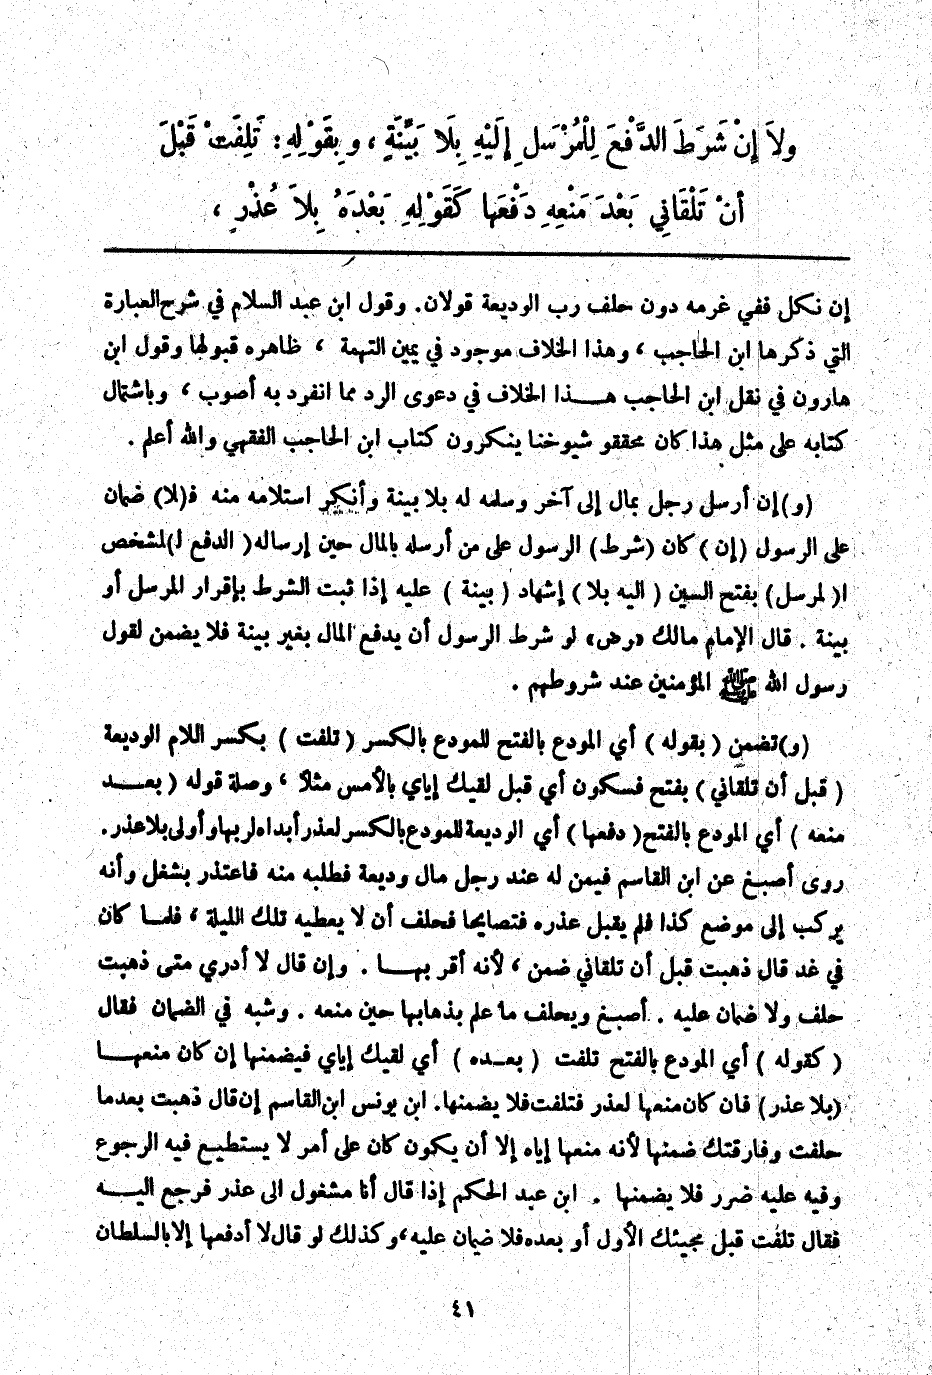 ولاَ إِنْ شَرَطَ الدَّفْعَ لِلْمُرْسَلِ إِلَيْهِ بِلَا بَيِّنَةٍ ، و بِقَوْلِهِ : تَلِفَتْ قَبْلَ
أَنْ تَلْقَانِي بَعْدَ مَنْعِهِ دَفْعَهَا كَقَوْلِهِ بَعْدَهُ بِلاَ عُذْرٍ ،
إن نكل ففي غرمه دون حلف رب الوديعة قولان. وقول ابن عبد السلام في شرح العبارة
التي ذكرها ابن الحاجب ، وهذا الخلاف موجود في يمين التهمة ، ظاهره قبولها وقول ابن
هارون في نقل ابن الحاجب هــذا الخلاف في دعوى الرد مما انفرد به أصوب ، وباشتمال
كتابه على مثل هذا كان محققو شيوخنا ينكرون كتاب ابن الحاجب الفقهي والله أعلم .
(و)إن أرسل رجل بمال إلى آخر وسلمه له بلا بينة وأنكر استلامه منه فـ(لا) ضمان
على الرسول (إن ) كان (شرط) الرسول على من أرسله بالمال حين إرساله( الدفع لـ)لشخص
ا( لمرسل) بفتح السين ( اليه بلا ) إشهاد ( بينة ) عليه إذا ثبت الشرط بإقرار المرسل أو
بينة . قال الإمام مالك «رض» لو شرط الرسول أن يدفع المال بغير بينة فلا يضمن لقول
رسول الله ﷺ المؤمنين عند شروطهم .
(و)تضمن ( بقوله ) أي المودع بالفتح للمودع بالكسر ( تلفت ) بكسر اللام الوديعة
( قبل أن تلقاني ) بفتح فسكون أي قبل لقيك إياي بالأمس مثلاً ، وصلة قوله ( بعــد
منعه ) أي المودع بالفتح( دفعها ) أي الوديعة للمودع بالكسر لعذر أبداه لربها وأولى بلا عذر.
روى أصبغ عن ابن القاسم فيمن له عند رجل مال وديعة فطلبه منه فاعتذر بشغل وأنه
يركب إلى موضع كذا فلم يقبل عذره فتصايحا فحلف أن لا يعطيه تلك الليلة ، فلمـا كان
في غد قال ذهبت قبل أن تلقاني ضمن ، لأنه أقر بهــا . وإن قال لا أدري متى ذهبت
حلف ولا ضمان عليه . أصبـغ ويحلف ما علم بذهابها حين منعه . وشبه في الضمان فقال
( كقوله ) أي المودع بالفتح تلفت ( بعـده ) أي لقيك إياي فيضمنها إن كان منعهــا
(بلا عذر) فان كان منعها لعذر فتلفت فلا يضمنها. ابن يونس ابن القاسم إن قال ذهبت بعدما
حلفت وفارقتك ضمنها لأنه منعها إياه إلا أن يكون كان على أمر لا يستطيـع فيه الرجوع
وفيه عليه ضرر فلا يضمنها . ابن عبد الحكم إذا قال أنا مشغول الى عذر فرجع اليــه
فقال تلفت قبل مجيئك الأول أو بعده فلا ضمان عليه ، و كذلك لو قال لا أدفعها إلا بالسلطان
٤١